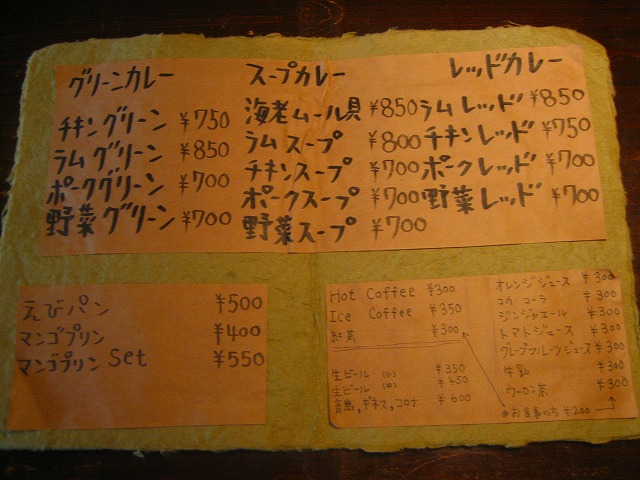 グリーンカレー
チキングリーン ¥750
ラムグリーン ¥850
ポークグリーン ¥700
野菜グリーン ¥700
スープカレー
海老ムール貝 ¥850
ラムスープ ¥800
チキンスープ ¥700
ポークスープ ¥700
野菜スープ ¥700
レッドカレー
ラムレッド ¥850
チキンレッド ¥750
ポークレッド ¥700
野菜レッド ¥700
えびパン ¥500
マンゴプリン ¥400
マンゴプリン Set ¥550
Hot Coffee ¥300
Ice Coffee ¥350
紅茶 ¥300
生ビール (小) ¥350
生ビール (中) ¥450
青島,ギネス,コロナ ¥600
オレンジジュース ¥300
コカ・コーラ ¥300
ジンジャエール ¥300
トマトジュース ¥300
グレープフルーツジュース ¥300
牛乳 ¥300
ウーロン茶 ¥300
お食事のち ¥200